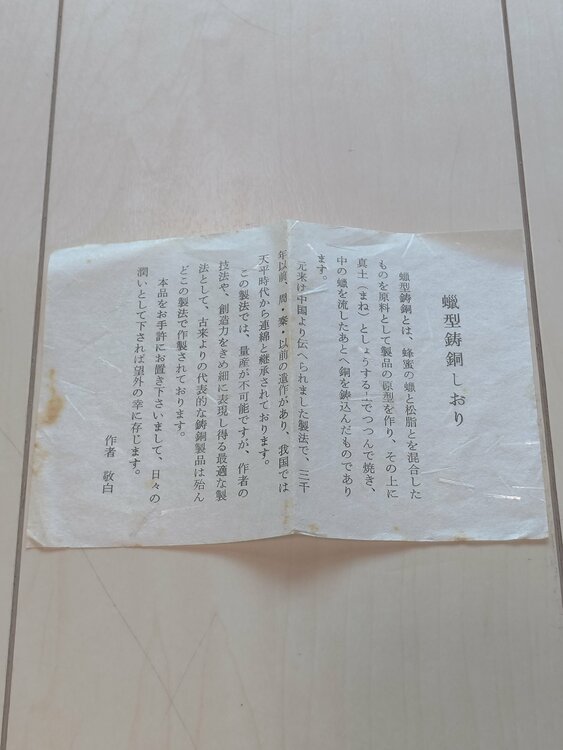 蠟型鋳銅しおり
蠟型鋳銅とは、蜂蜜の蠟と松脂とを混合した
ものを原料として製品の原型を作り、その上に
真土（まね）としょうする土でつつんで焼き、
中の蠟を流したあとへ銅を鋳込んだものであり
ます。
元来は中国より伝へられました製法で、三千
年以前、周・秦・以前の遺作があり、我国では
天平時代から連綿と継承されております。
この製法では、量産が不可能ですが、作者の
技法や、創造力をきめ細に表現し得る最適な製
法として、古来よりの代表的な鋳銅製品は殆ん
どこの製法で作製されております。
本品をお手許にお置き下さいまして、日々の
潤いとして下されば望外の幸に存じます。
作者 敬白